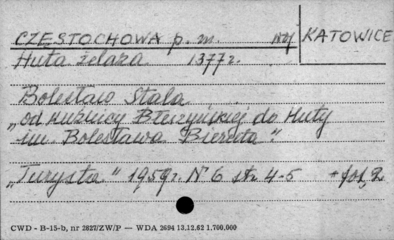 CZĘSTOCHOWA p. m. KATOWICE
Huta żelaza 1377 r.
Bolesław Stala
„od kuźnicy Błeszyńskiej do Huty
im. Bolesława Bieruta"
„Turysta" 1959 r. Nº 6 str. 4-5 + fot. 2
CWD - B-15-b, nr 2827/ZW/P — WDA 2694 13.12.62 1,700,000